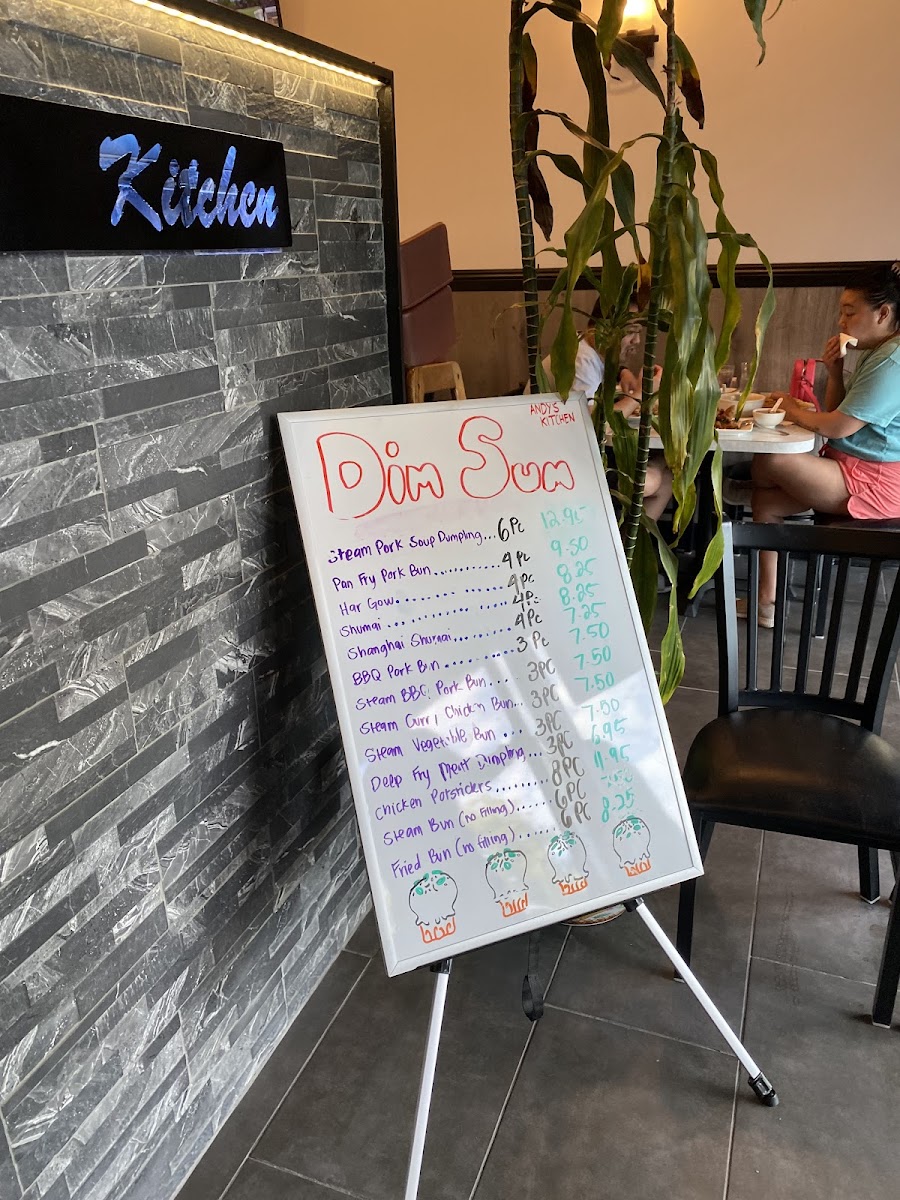 Kitchen
ANDY'S
KITCHEN
Dim Sum
Steam Pork Soup Dumpling...6 Pc 12.95
Pan Fry Pork Bun..........4 Pc 9.50
Har Gow..............4 Pc 8.25
Shumai..............4 Pc 8.25
Shanghai Shumai........4 Pc 7.25
BBQ Pork Bun..........3 Pc 7.50
Steam BBQ Pork Bun.....3PC 7.50
Steam Curry Chicken Bun...3PC 7.50
Steam Vegetable Bun...3PC 7.00
Deep Fry Meat Dumpling...3PC 6.95
Chicken Potstickers........8PC 11.95
Steam Bun (no filling)......6PC
Fried Bun (no filling)......6 PC 8.25